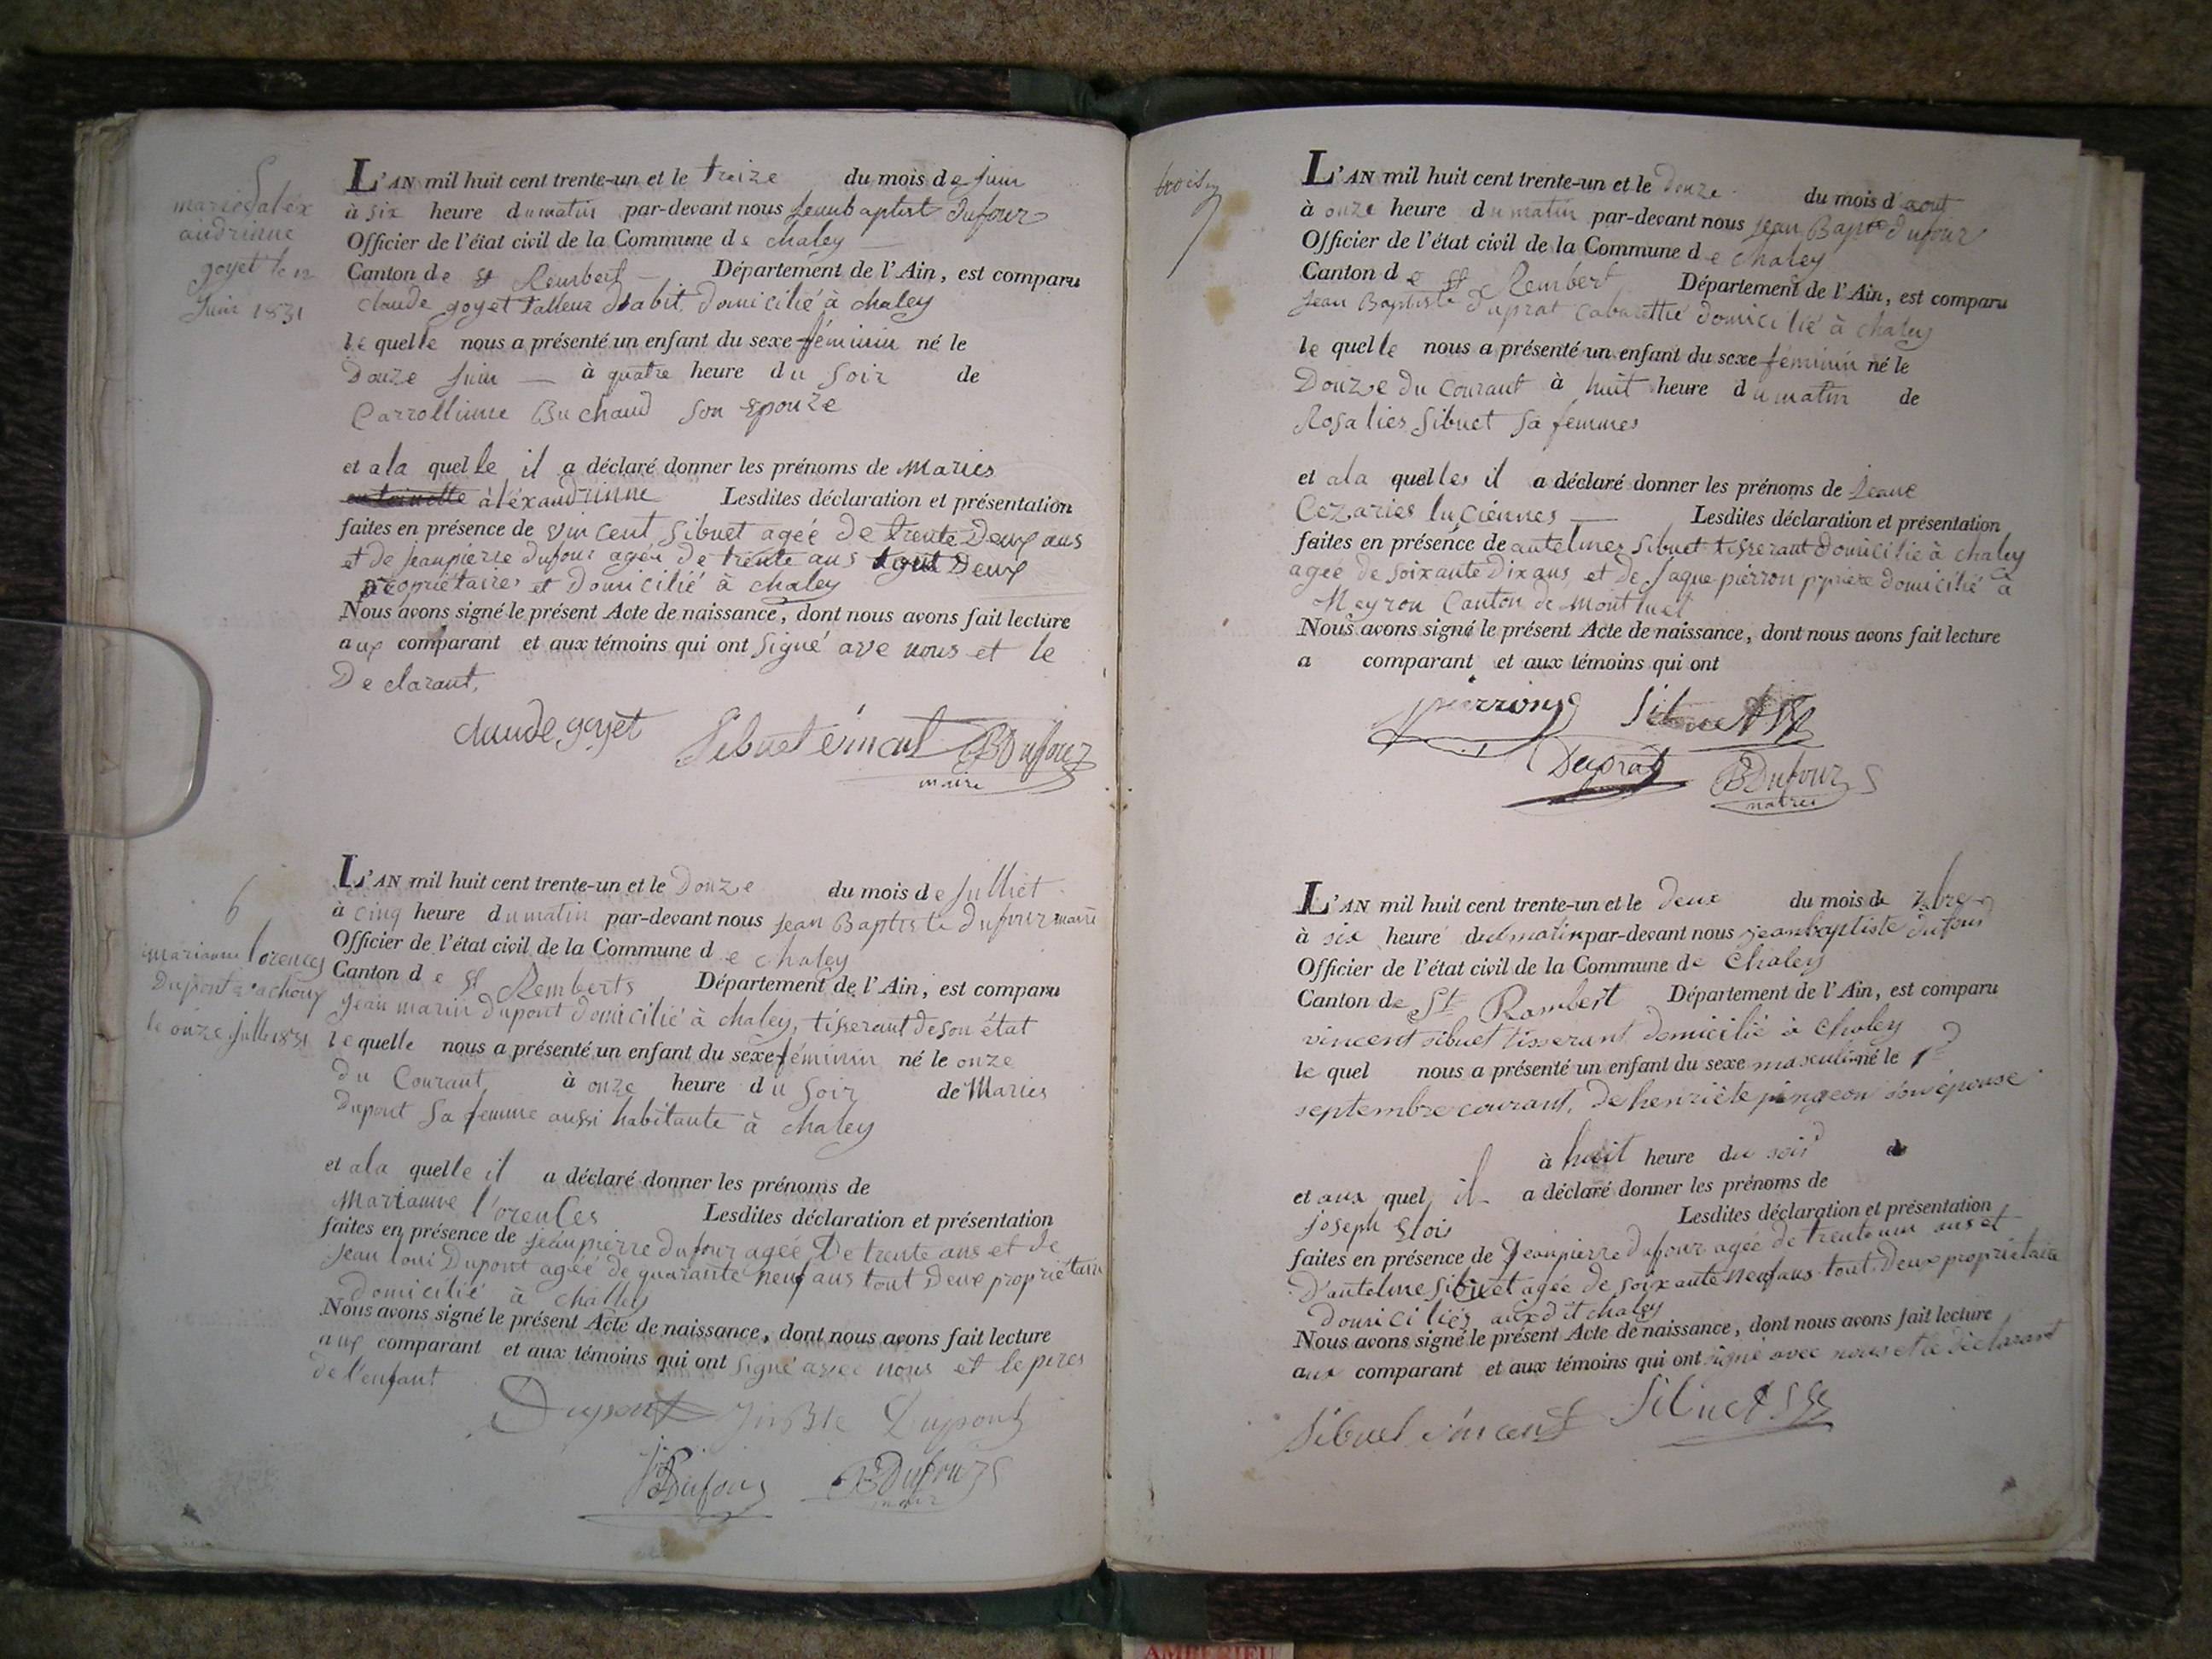 5
maries aléx
andrinne
goyet le 12
Juin 1831
L'AN mil huit cent trente-un et le treize du mois de Juin
à six heure du matin par-devant nous Jeanbaptist dufour
Officier de l'état civil de la Commune de chaley
Canton de St Rembert Département de l'Ain, est comparu
claude goyet talleur dhabit domicilié à chaley
le quelle nous a présenté un enfant du sexe féminin né le
Douze Juin à quatre heure du Soir de
Carrollinne Buchaud son Epouze
et a la quelle il a déclaré donner les prénoms de Maries
antoinette aléxandrinne Lesdites déclaration et présentation
faites en présence de vincent Sibuet agée de trente Deux ans
et de jeanpierre dufour agée de trente ans tout Deux
propriétaires et Domicilié à chaley
Nous avons signé le présent Acte de naissance, dont nous avons fait lecture
aux comparant et aux témoins qui ont signé ave nous et le
Declarant,
claude goyet Sibuet vincent JB Dufour
maire
6
mariann lorences
Dupont
le onze 1831
L'AN mil huit cent trente-un et le Douze du mois de Julliet
à cinq heure du matin par-devant nous Jean Baptiste Dufour maire
Officier de l'état civil de la Commune de chaley
Canton de St Remberts Département de l'Ain, est comparu
Jean marin Dupont domicilié à chaley, tisserant de son état
le quelle nous a présenté un enfant du sexe féminin né le onze
du Courant à onze heure du Soir de Maries
Dupont Sa femme aussi habitante à chaley
et a la quelle il a déclaré donner les prénoms de
Marianne l'orences Lesdites déclaration et présentation
faites en présence de Jeanpierre Dufour agée De trente ans et de
Jean loui Dupont agée de quarante neuf ans tout Deux propriétair
domicilié à challey
Nous avons signé le présent Acte de naissance, dont nous avons fait lecture
aux comparant et aux témoins qui ont signé avec nous et le peres
de l'enfant
Dupont Dupont
Dufour JB Dufour
maire
L'AN mil huit cent trente-un et le Douze du mois d'aout
à onze heure du matin par-devant nous Jean Baptte dufour
Officier de l'état civil de la Commune de chaley
Canton de St Rembert Département de l'Ain, est comparu
Jean Baptiste Duprat Cabarettié domicilié à chaley
le quelle nous a présenté un enfant du sexe féminin né le
Douze du Courant à huit heure du matin de
Rosalies Sibuet Sa femmes
et a la quelles il a déclaré donner les prénoms de Jeane
Cezaries luciennes Lesdites déclaration et présentation
faites en présence de antelmes Sibuet tisserant domicilié à chaley
agée de soixante Dix ans, et de Jaque pierron domicilié à
Meyron Canton de Montluel
Nous avons signé le présent Acte de naissance, dont nous avons fait lecture
a comparant et aux témoins qui ont
pierron Sibuet
Duprat JB Dufour
maires
L'AN mil huit cent trente-un et le deux du mois de 7bre
à six heure du matin par-devant nous jeanbaptiste dufour
Officier de l'état civil de la Commune de Chaley
Canton de St Rambert Département de l'Ain, est comparu
vincent sibuet tisserant domicilié à Chaley
le quel nous a présenté un enfant du sexe masculin né le 1er
septembre courant, de henriéte pingeon son épouse
à huit heure du soir de
et aux quel il a déclaré donner les prénoms de
joseph Elois Lesdites déclaration et présentation
faites en présence de Jeanpierre dufour agée de trente un ans et
D'antelme sibuet agée de soixante neuf ans tout Deux propriétaire
Domiciliés aixdit chaley
Nous avons signé le présent Acte de naissance, dont nous avons fait lecture
aux comparant et aux témoins qui ont signé avec nous et le déclarant
Sibuet vincent Sibuet
AMBERIEU